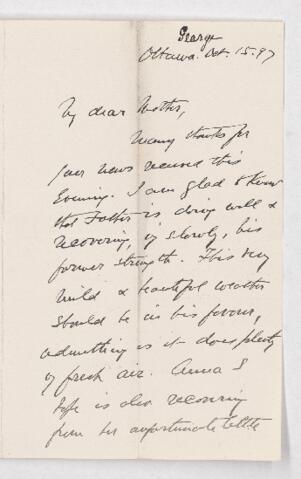 George
Ottawa. Oct. 15. 97
My dear Mother,
Many thanks for
your news received this
Evening. I am glad to know
that Father is doing well &
recovering, if slowly, his
former strength. This very
mild & beautiful weather
should be in his favour,
admitting as it does plenty
of fresh air. Anna I
hope is also recovering
from her unfortunate little